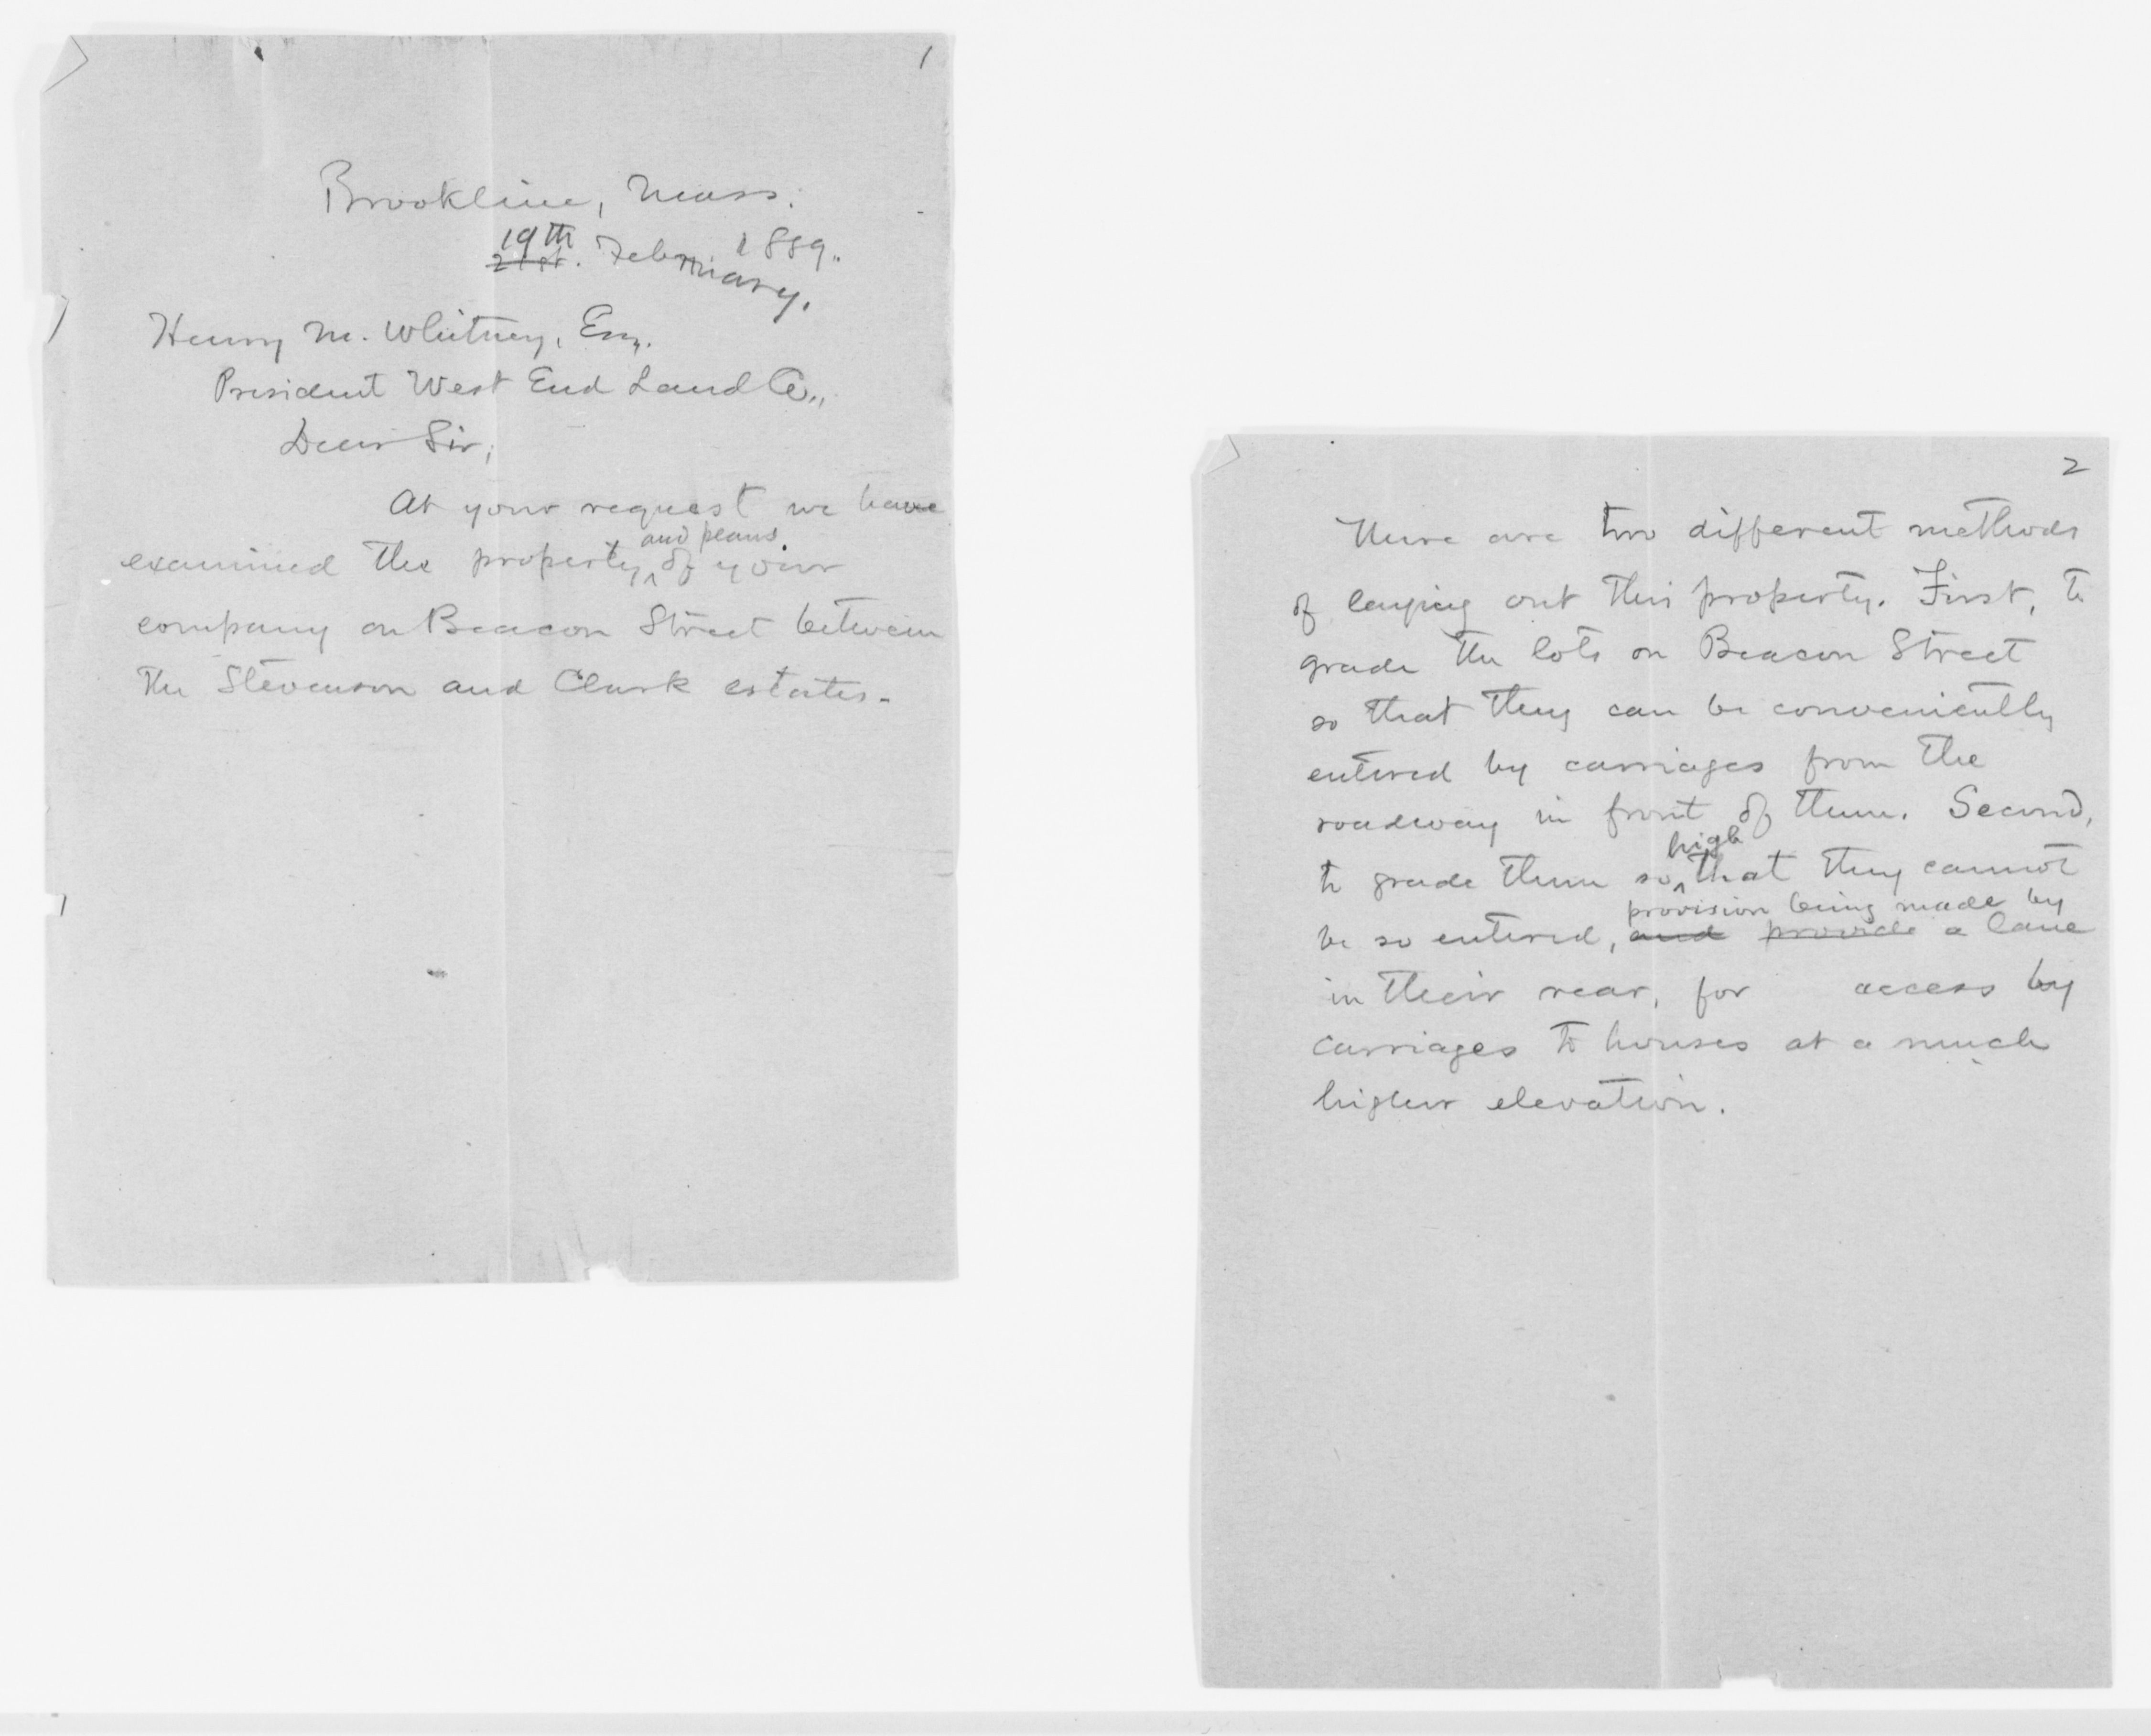 1
Brookline, Mass.
19th
21st. February, 1889.
Henry M. Whitney, Esq.
President West End Land Co.,
Dear Sir;
At your request we have
and plans
examined the property, ^ of your
company on Beacon Street between
the Stevenson and Clark estates.
2
There are two different methods
of laying out this property. First, to
grade the lots on Beacon Street
so that they can be conveniently
entered by carriages from the
roadway in front of them. Second,
high
to grade them so ^ that they cannot
provision being made by
be so entered, and provide a lane
in their rear, for access by
carriages to houses at a much
higher elevation.